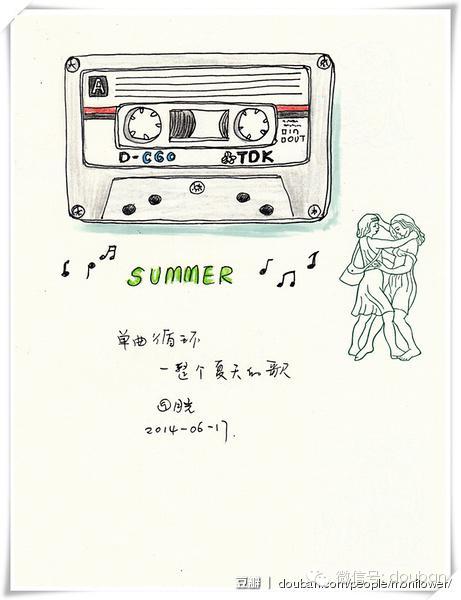 A
IN
OUT
D-C60 TDK
SUMMER
单曲循环
一整个夏天的歌
2014-06-17.
微信号: douban
豆瓣 | douban.com/people/moriflower/